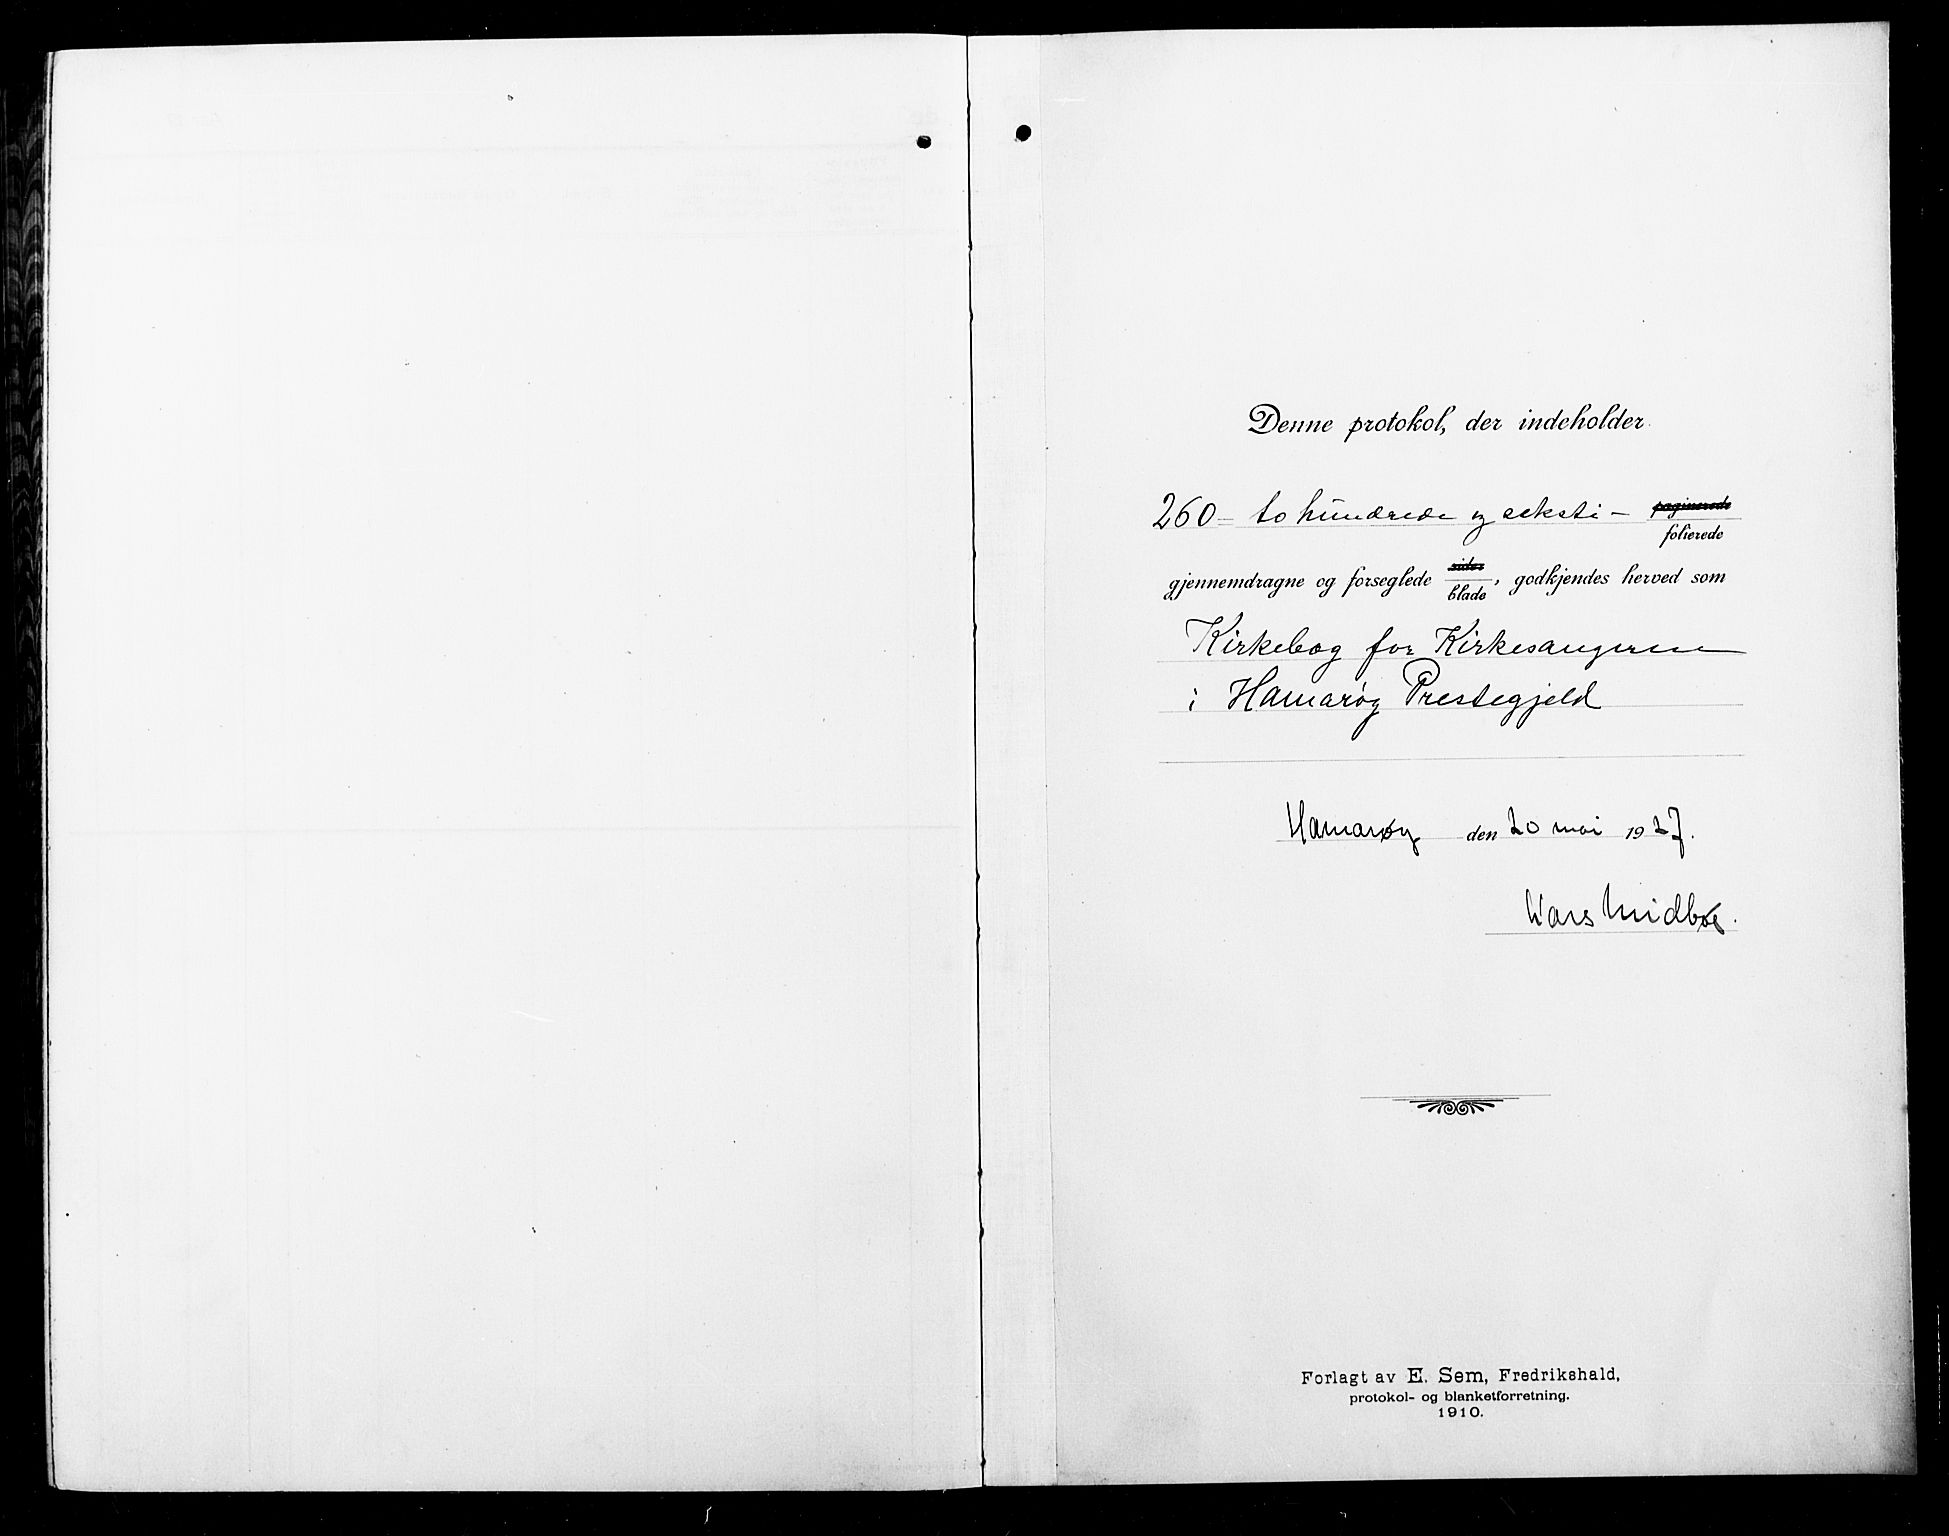 Denne protokol, der indeholder
260 - to hundrede og seksti - paginerede
folierede
gjennemdragne og forseglede sider
blade, godkjendes herved som
Kirkebog for Kirkesangeren
i Hamarøy Prestegjeld
Hamarøy den 20 mai 1927.
Lars Midbøe.
Forlagt av E. Sem, Fredrikshald,
protokol- og blanketforretning.
1910.